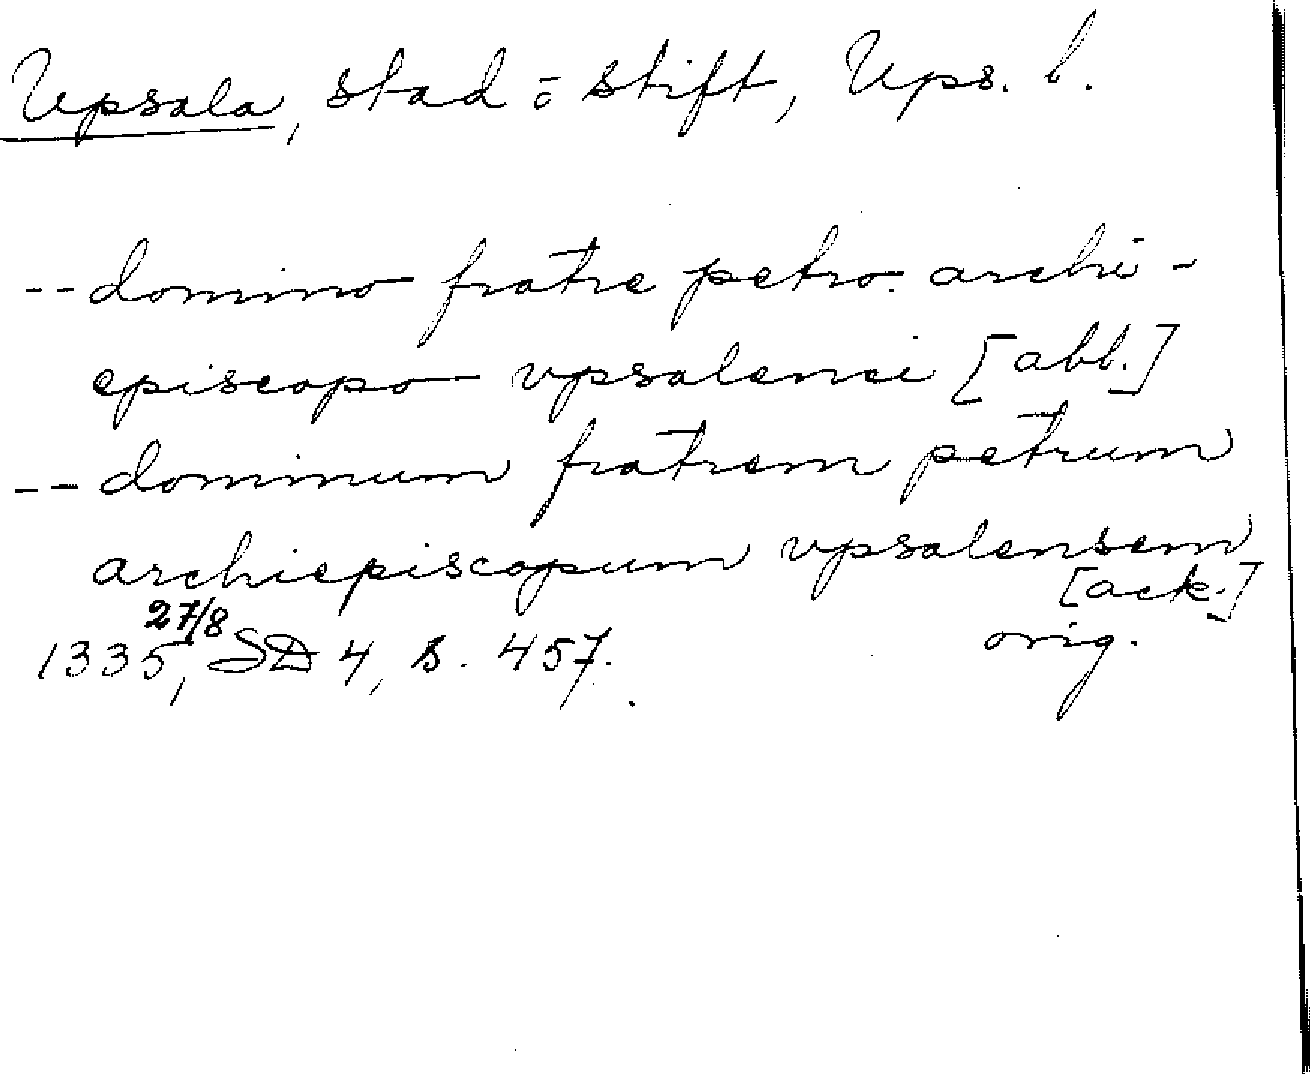 Upsala, stad o stift, Ups. l.
-- domino fratre petro archi-
episcopo vpsalenci [abl.]
-- dominum fratrem petrum
archiepiscopum vpsalensem
[ack.]
27/8
1335, SD 4, s. 457. orig.